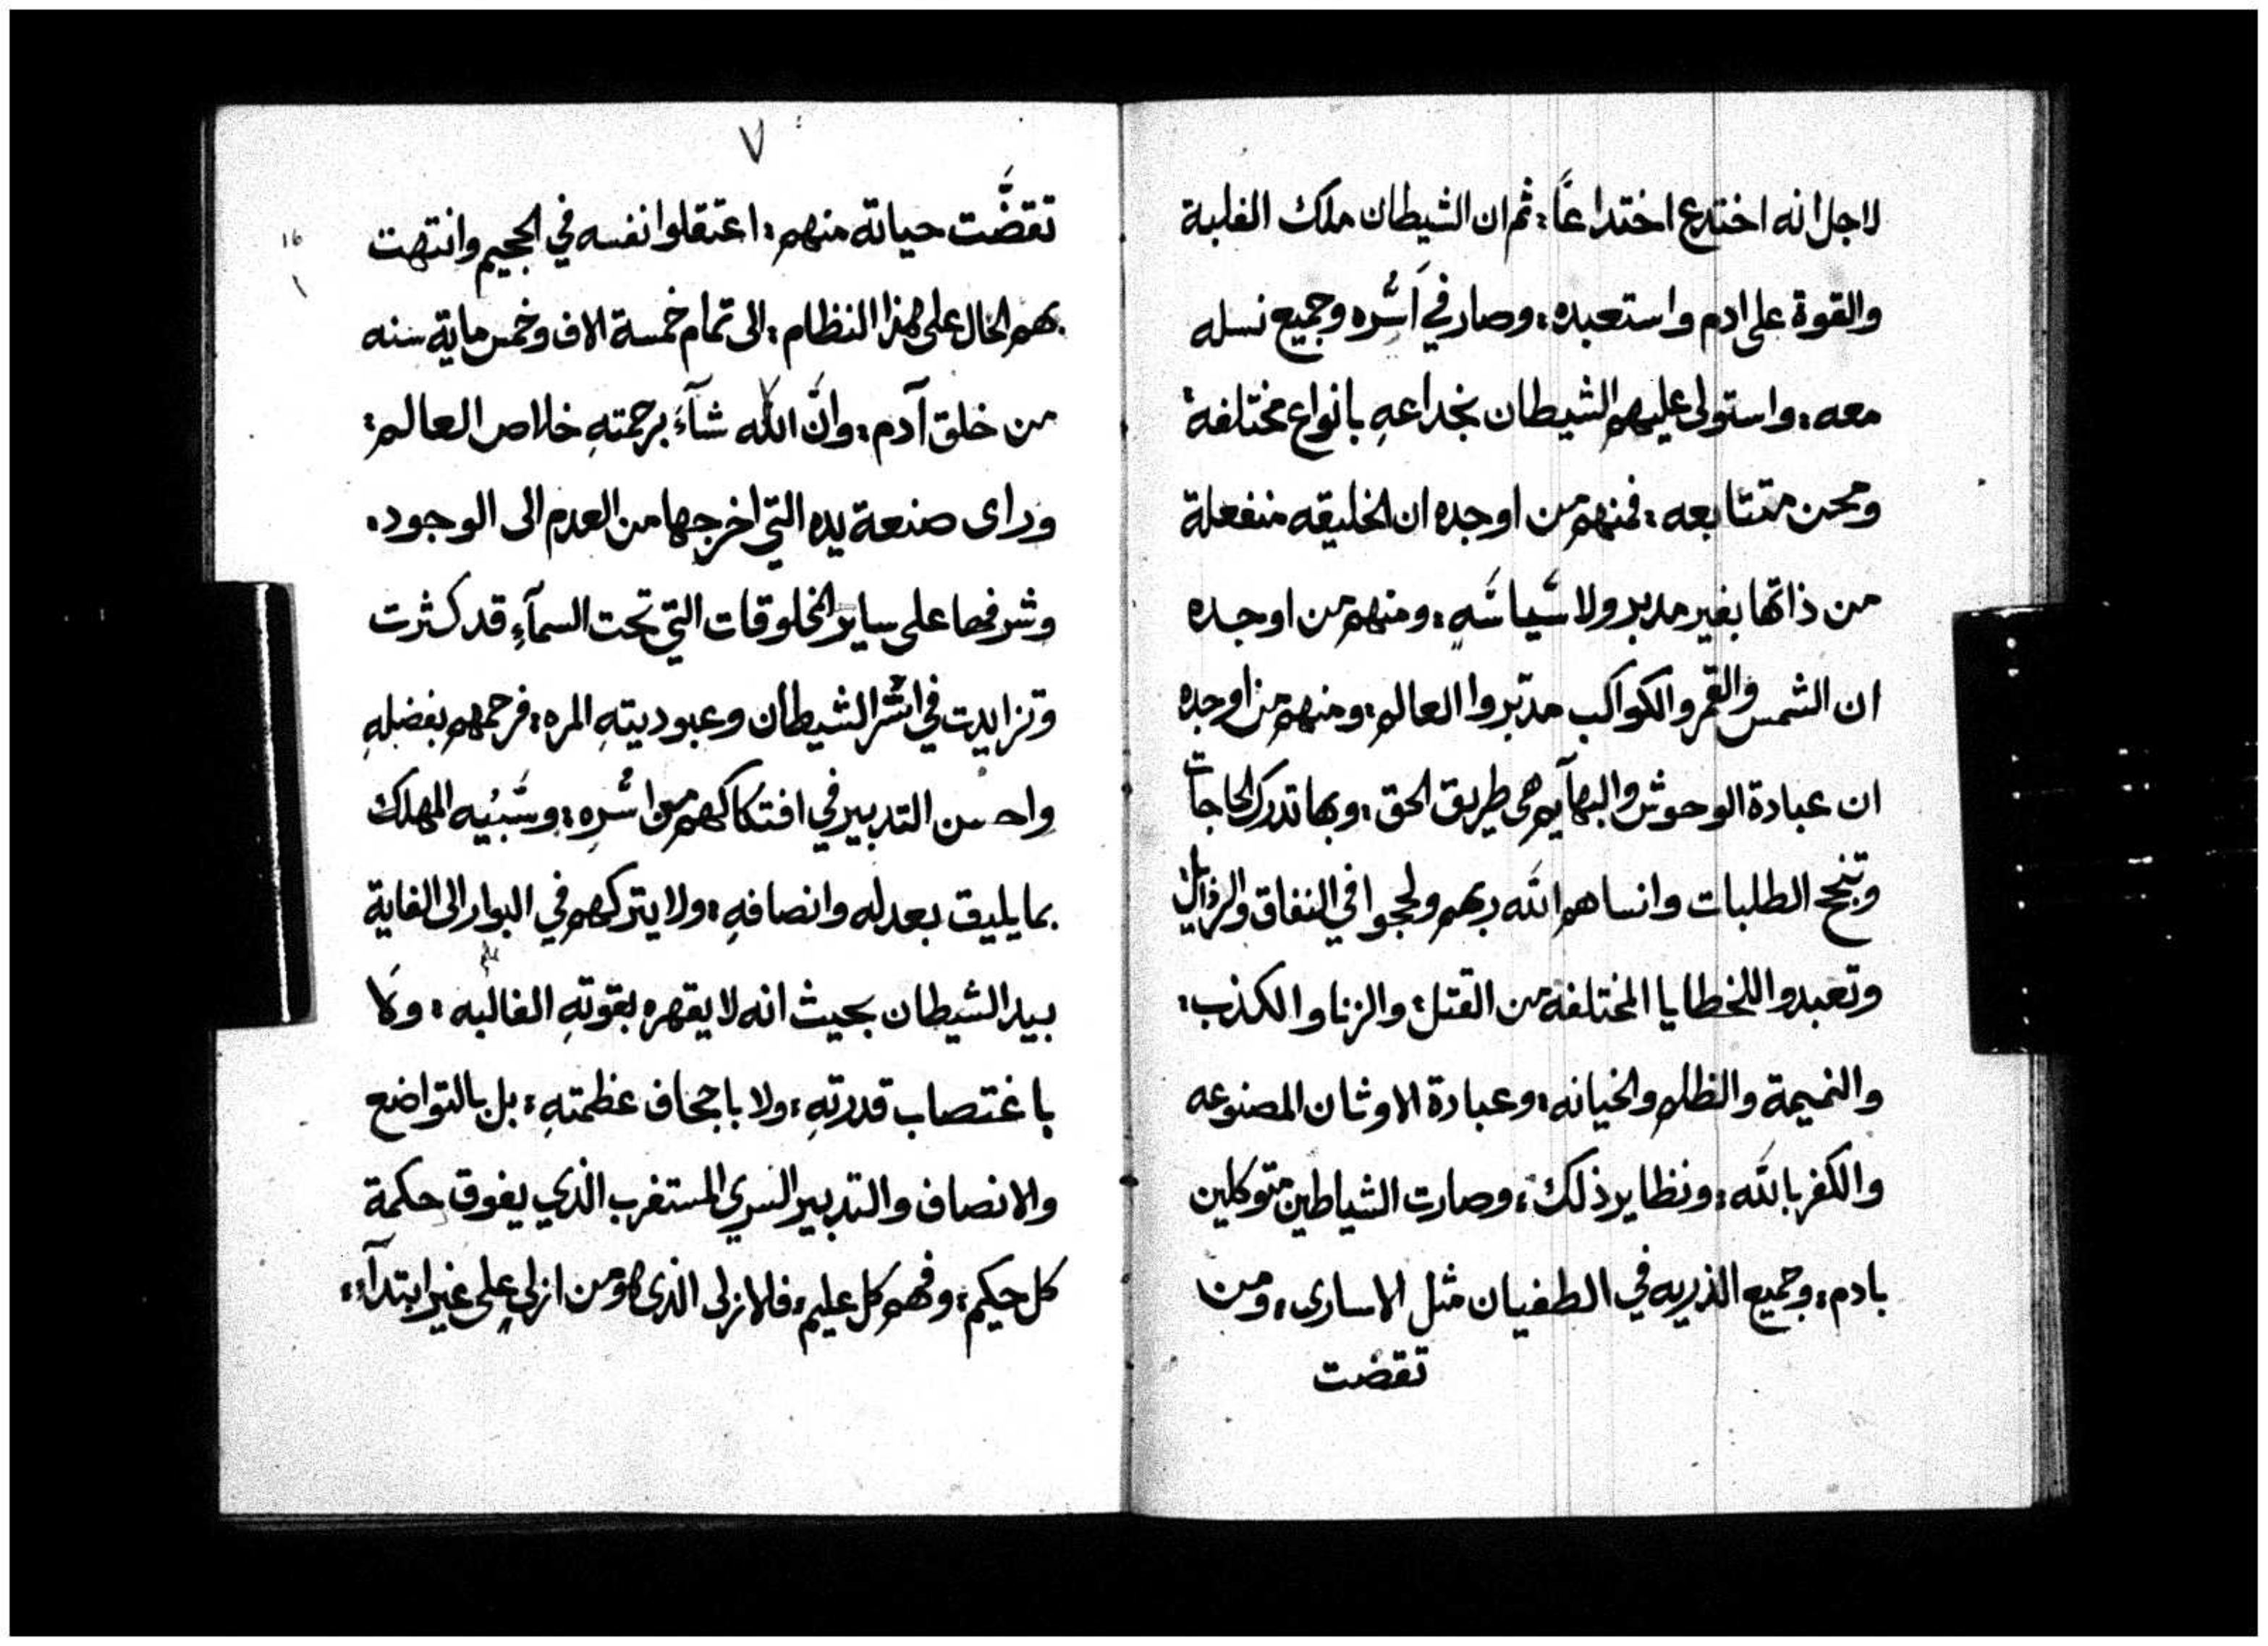 لاجل انه اختدع اختداعًا: ثم ان الشيطان ملك الغلبة
والقوة على ادم واستعبده: وصار في اَسْره وجميع نسله
معه: واستولى عليهم الشيطان بخداعهِ بانواع مختلفة:
ومحن متتابعه: فمنهم من اوجده ان الخليقه منفعلة
من ذاتها بغير مدبر ولا سَياسَهٍ: ومنهم من اوجده
ان الشمس والقمر والكواكب مدبّروا العالم: ومنهم من اوجده
ان عبادة الوحوش والبهآيم هى طريق الحق: وبها تدرك الحاجات
وتنجح الطلبات وانساهم الله ربهم ولججوا في النفاق والرذايل
وتعبدوا للخطايا المختلفة من القتل: والزنا والكذب:
والنميمة والظلم والخيانه: وعبادة الاوثان المصنوعه
والكفر بالله: ونظاير ذلك: وصارت الشياطين متوكلين
بادم: وجميع الذريه في الطغيان مثل الاسارى: ومن
تقضت
٧
تقضَّت حياته منهم: اعتقلوا نفسه في الجحيم وانتهت
بهم الحال على هذا النظام: الى تمام خمسة الاف وخمس ماية سنه
من خلق آدم: وانَّ الله شآءَ برحمتهِ خلاص العالم:
وراى صنعة يده التي اخرجها من العدم الى الوجود:
وشرفها على ساير المخلوقات التي تحت السمآءِ قد كثرت
وتزايدت في اسْر الشيطان وعبوديتهِ المره: فرحمهم بفضلهِ
واحسن التدبير في افتكاكهم من اسْرهِ: وسَبْيه المهلك
بما يليق بعدله وانصافهِ: ولا يتركهم في البوار الى الغاية
بيد الشيطان بحيث انه لا يقهره بقوتهِ الغالبه: ولا
باغتصاب قدرتهِ: ولا باجحاف عظمتهِ: بل بالتواضع
والانصاف والتدبير السري المستغرب الذي يفوق حكمة
كل حكيم: وفهم كل عليم: فالازلى الذى هو من ازلي على غير ابتدآء:
16